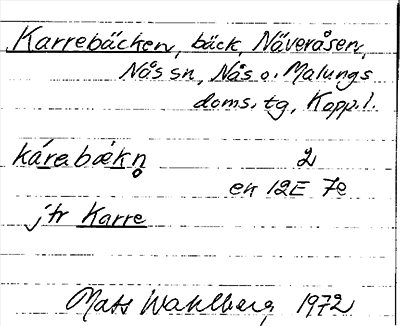 Karrebäcken, bäck, Näveråsen,
Nås sn, Nås o. Malungs
doms. tg, Kopp. l.
kárabǽkn̥ 2
ek 12E 7e
jfr Karre
Mats Wahlberg 1972